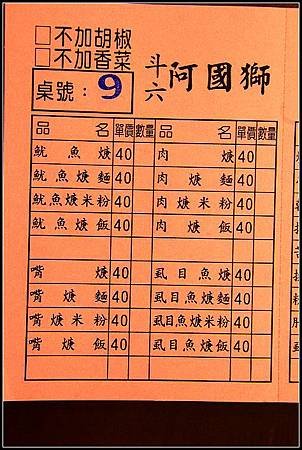 □不加胡椒
□不加香菜
桌號：9
斗六 阿國獅
品名 單價 數量 品名 單價 數量
魷魚焿 40 肉焿 40
魷魚焿麵 40 肉焿麵 40
魷魚焿米粉 40 肉焿米粉 40
魷魚焿飯 40 肉焿飯 40
嘴焿 40 虱目魚焿 40
嘴焿麵 40 虱目魚焿麵 40
嘴焿米粉 40 虱目魚焿米粉 40
嘴焿飯 40 虱目魚焿飯 40